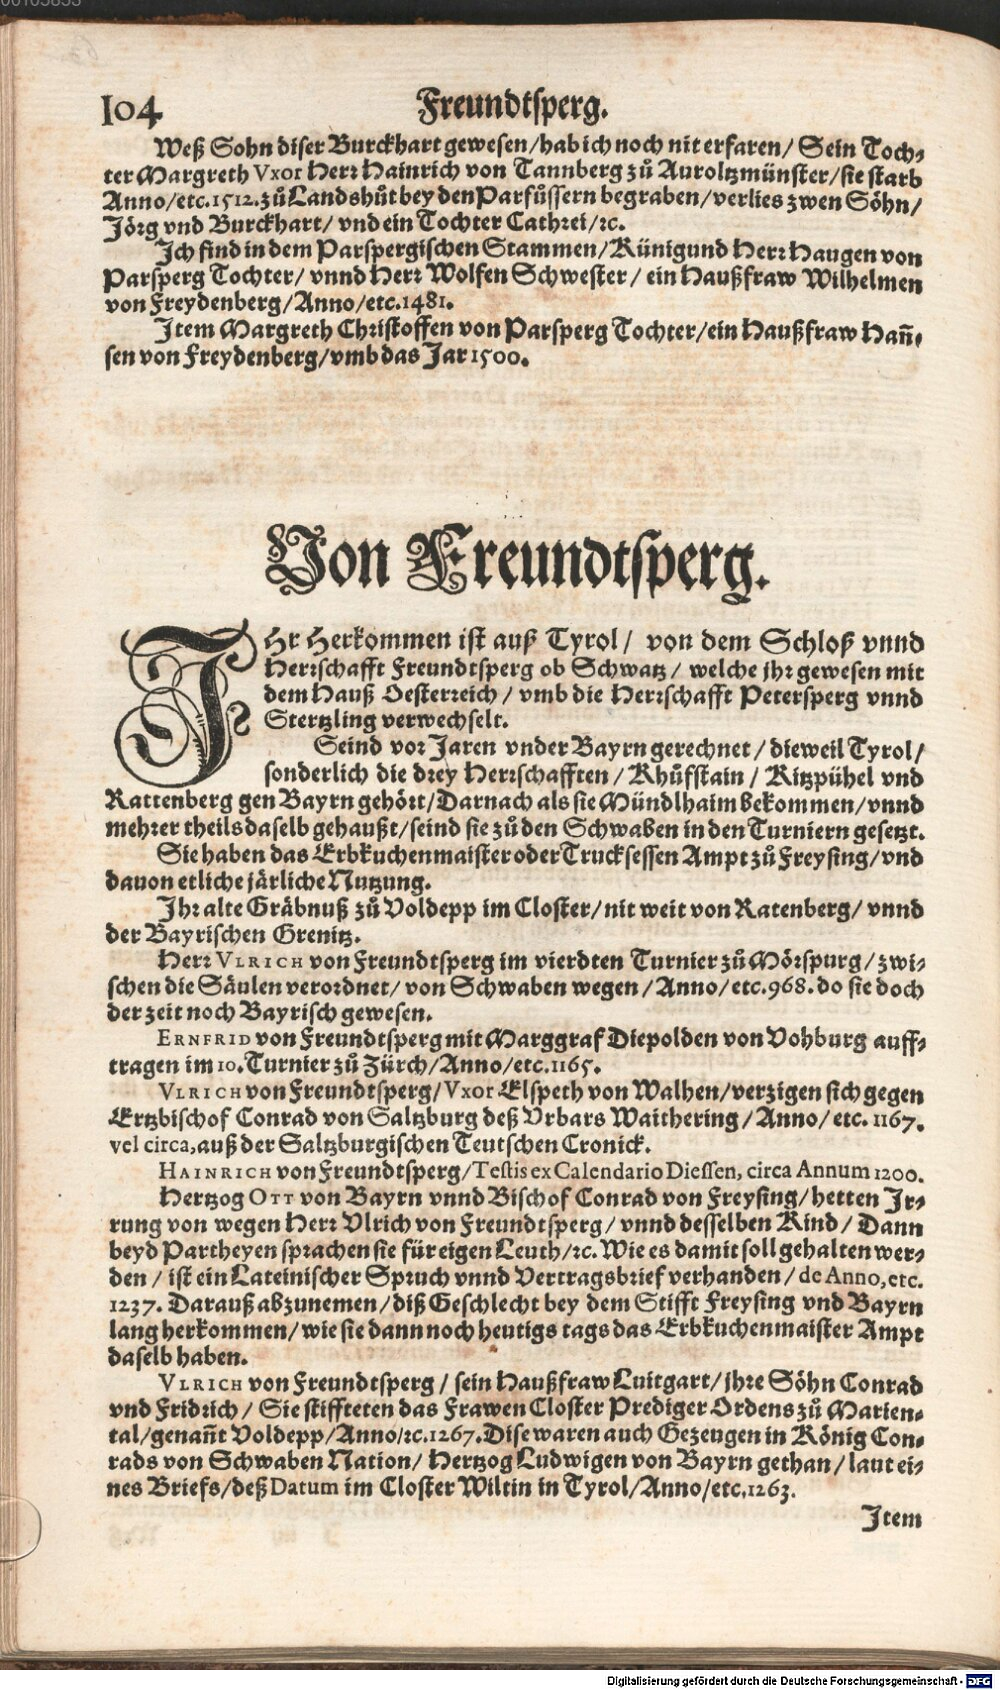 104
Freundtsperg.
Weß Sohn diser Burckhart gewesen/hab ich noch nit erfaren/ Sein Toch-
ter Margreth Vxor Herr Hainrich von Tannberg zů Auroltzmünster/sie starb
Anno/etc.1512.zů Landshůt bey den Parfůssern begraben/verlies zwen Söhn/
Jörg vnd Burckhart/ vnd ein Tochter Cathrei/ꝛc.
Ich find in dem Parspergischen Stammen/Künigund Herr Haugen von
Parsperg Tochter/ vnnd Herr Wolfen Schwester/ ein Haußfraw Wilhelmen
von Freydenberg/Anno/etc.1481.
Item Margreth Christoffen von Parsperg Tochter/ein Haußfraw Hañ-
sen von Freydenberg/vmb das Jar 1500.
Von Freundtsperg.
IHr Herkommen ist auß Tyrol/ von dem Schloß vnnd
Herrschafft Freundtsperg ob Schwatz/ welche jhr gewesen mit
dem Hauß Oesterreich/ vmb die Herrschafft Petersperg vnnd
Stertzling verwechselt.
Seind vor Jaren vnder Bayrn gerechnet/ dieweil Tyrol/
sonderlich die drey Herrschafften/ Khůfstain/ Kitzpühel vnd
Rattenberg gen Bayrn gehört/Darnach als sie Mündlhaim bekommen/vnnd
mehrer theils daselb gehaußt/seind sie zů den Schwaben in den Turniern gesetzt.
Sie haben das Erbkuchenmaister oder Trucksessen Ampt zů Freysing/vnd
dauon etliche järliche Nutzung.
Ihr alte Gräbnuß zů Voldepp im Closter/nit weit von Ratenberg/ vnnd
der Bayrischen Grenitz.
Herr VLRICH von Freundtsperg im vierdten Turnier zů Mörspurg/zwi-
schen die Säulen verordnet/ von Schwaben wegen/Anno/etc.968. do sie doch
der zeit noch Bayrisch gewesen.
ERNFRID von Freundtsperg mit Marggraf Diepolden von Vohburg auff-
tragen im 10.Turnier zů Zürch/Anno/etc.1165.
VLRICH von Freundtsperg/Vxor Elspeth von Walhen/verzigen sich gegen
Ertzbischof Conrad von Saltzburg deß Vrbars Waithering/Anno/etc. 1167.
vel circa,auß der Saltzburgischen Teutschen Cronick.
HAINRICH von Freundtsperg/Testis ex Calendario Diessen, circa Annum 1200.
Hertzog OTT von Bayrn vnnd Bischof Conrad von Freysing/hetten Jr-
rung von wegen Herr Vlrich von Freundtsperg/ vnnd desselben Kind/ Dann
beyd Partheyen sprachen sie für eigen Leuth/ꝛc. Wie es damit soll gehalten wer-
den/ ist ein Lateinischer Spruch vnnd Vertragsbrief verhanden/ de Anno,etc.
1237. Darauß abzunemen/diß Geschlecht bey dem Stifft Freysing vnd Bayrn
lang herkommen/wie sie dann noch heutigs tags das Erbkuchenmaister Ampt
daselb haben.
VLRICH von Freundtsperg/ sein Haußfraw Luitgart/jhre Söhn Conrad
vnd Fridrich/ Sie stiffteten das Frawen Closter Prediger Ordens zů Marien-
tal/genañt Voldepp/Anno/ꝛc.1267.Dise waren auch Gezeugen in König Con-
rads von Schwaben Nation/ Hertzog Ludwigen von Bayrn gethan/laut ei-
nes Briefs/deß Datum im Closter Wiltin in Tyrol/Anno/etc.1263.
Item
Digitalisierung gefördert durch die Deutsche Forschungsgemeinschaft - DFG